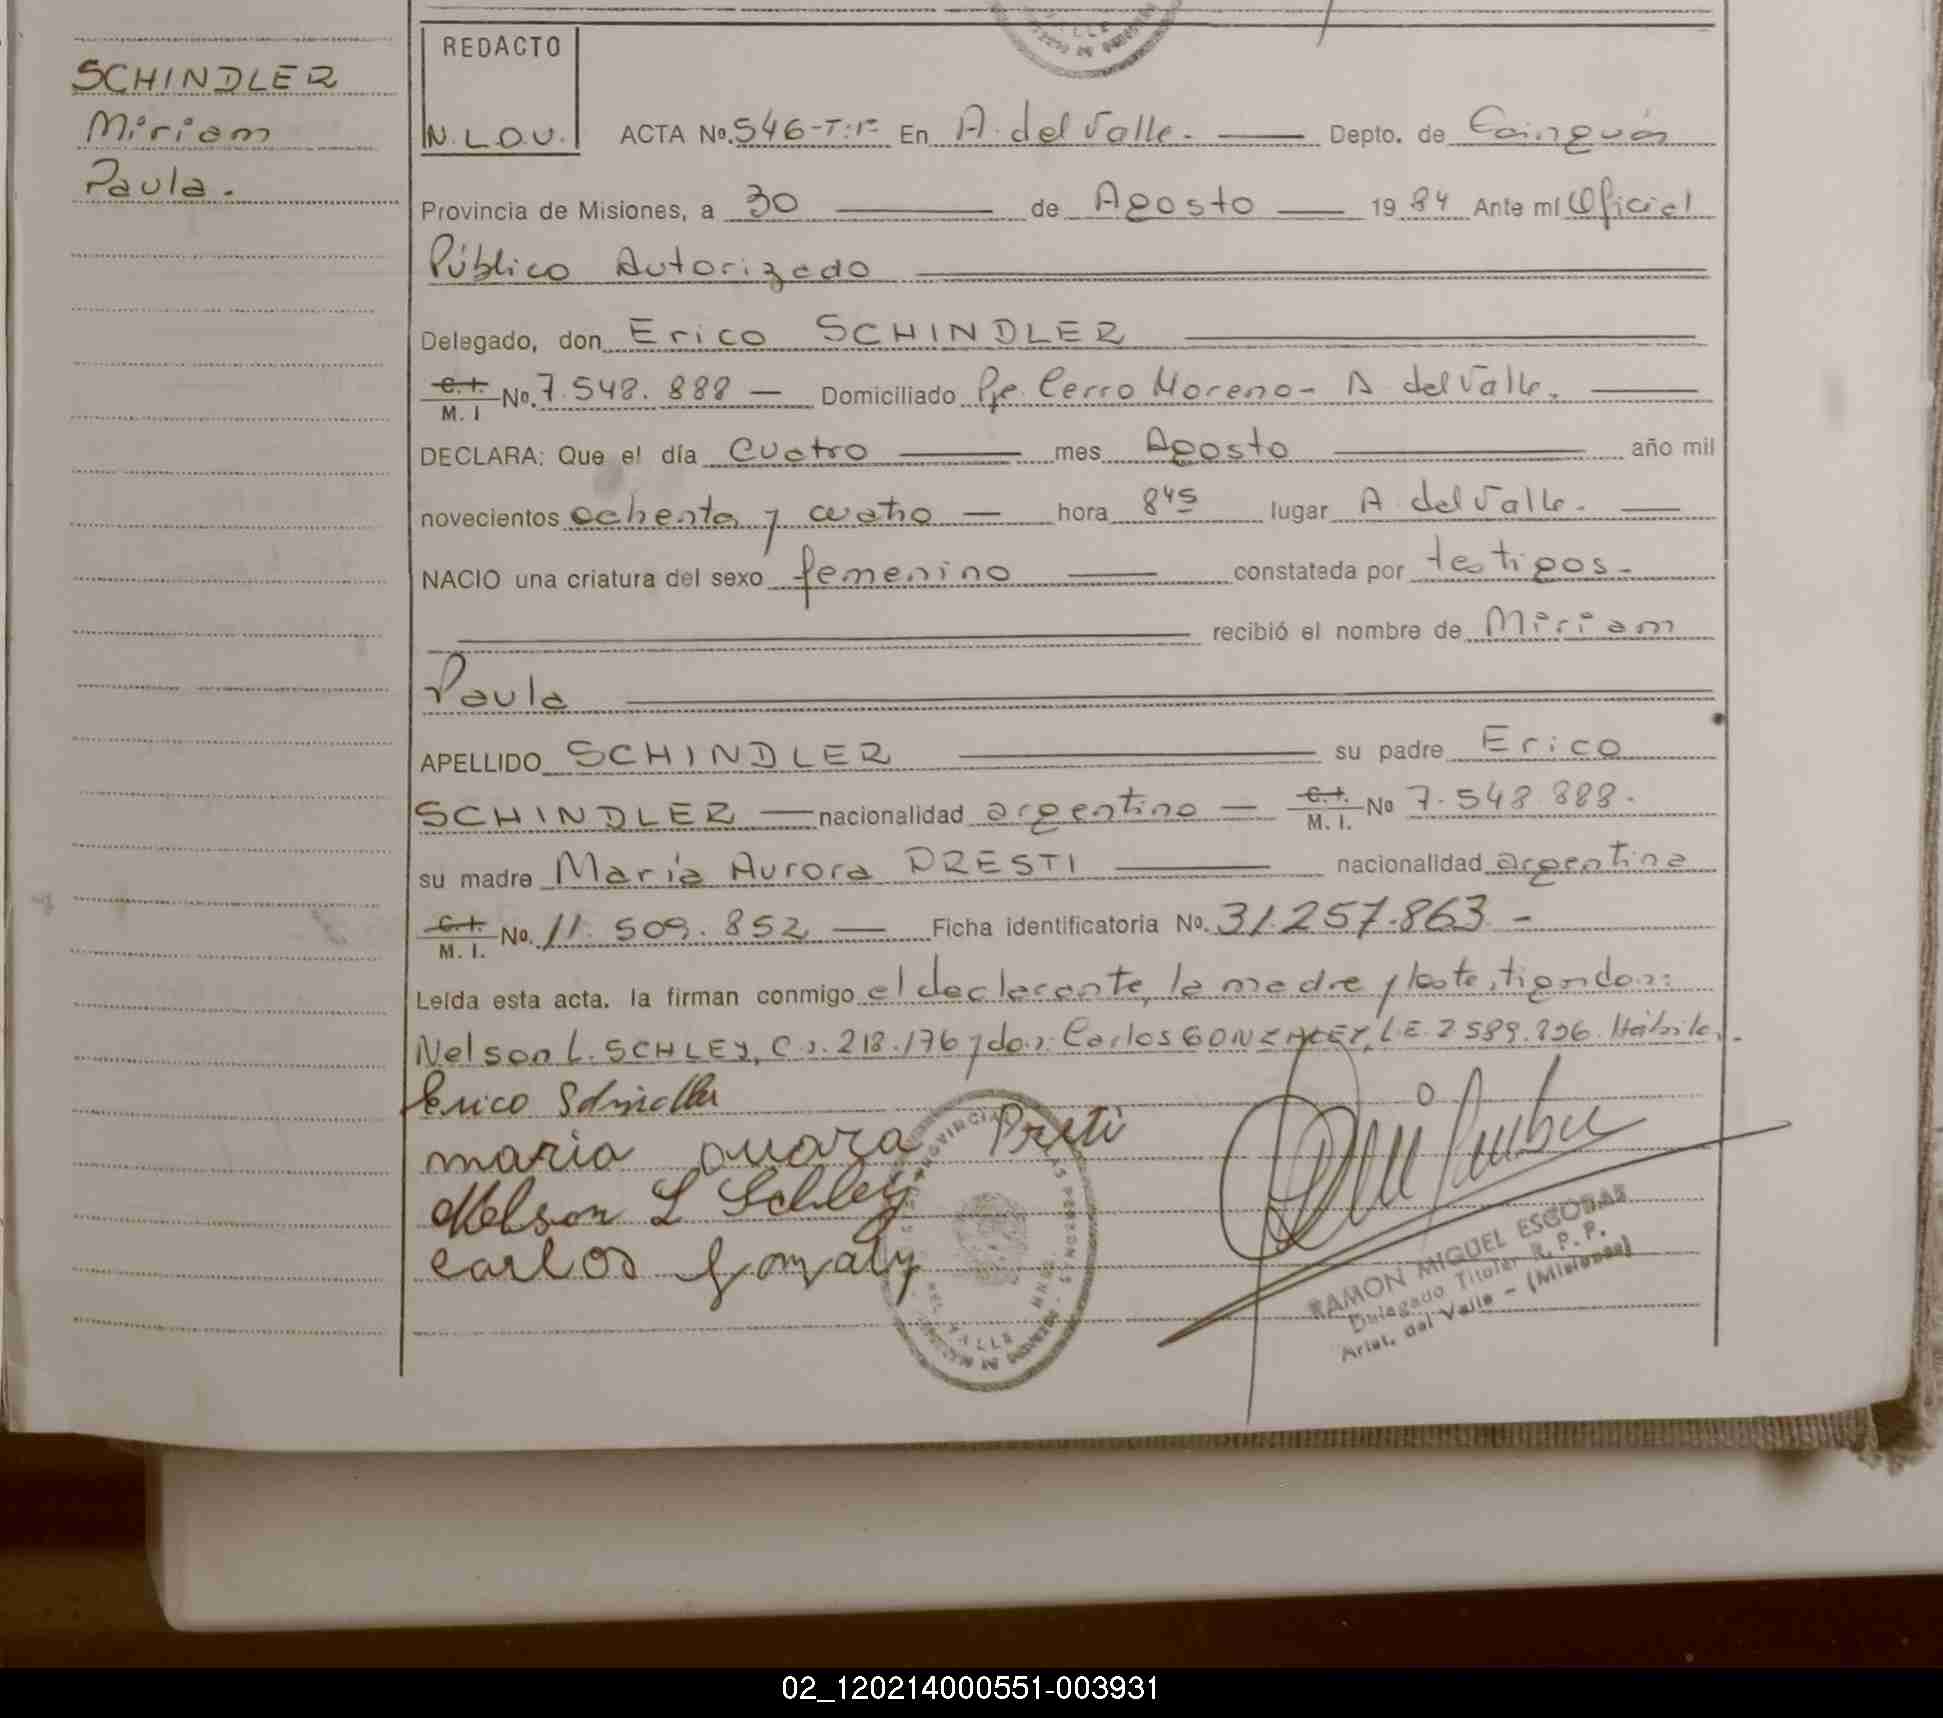 SCHINDLER
Miriam
Paula.
REDACTO
N.L.O.U.
ACTA Nº. 546-T:I: En A. del Valle. Depto. de Cainguás
Provincia de Misiones, a 30 de Agosto 19 84 Ante mí Oficial
Público Autorizado
Delegado, don Erico SCHINDLER
C.I. M. I Nº. 7.548.888 — Domiciliado Pje. Cerro Moreno - A del Valle.
DECLARA: Que el día cuatro mes Agosto año mil
novecientos ochenta y cuatro — hora 8 45 lugar A. del Valle.
NACIO una criatura del sexo femenino constatada por testigos.
recibió el nombre de Miriam
Paula
APELLIDO SCHINDLER su padre Erico
SCHINDLER — nacionalidad argentino — C.I. M. I. Nº 7.548.888.
su madre María Aurora PRESTI nacionalidad argentina
C.I. M. I. Nº. 11.509.852 — Ficha identificatoria Nº. 31.257.863 -
Leída esta acta. la firman conmigo el declarante, la madre y los testigos don:
Nelson L. SCHLEY, C.I. 218.176 y don: Carlos GONZALEZ, L.E. 2.589.896. Hábiles.
Erico Schindler
maria auora Presti
Nelson L Schley
carlos gonzaly
PROVINCIAL
VALLE
RAMON MIGUEL ESCOBAR
Delegado Titular R. P. P.
Arist. del Valle - (Misiones)
02_120214000551-003931